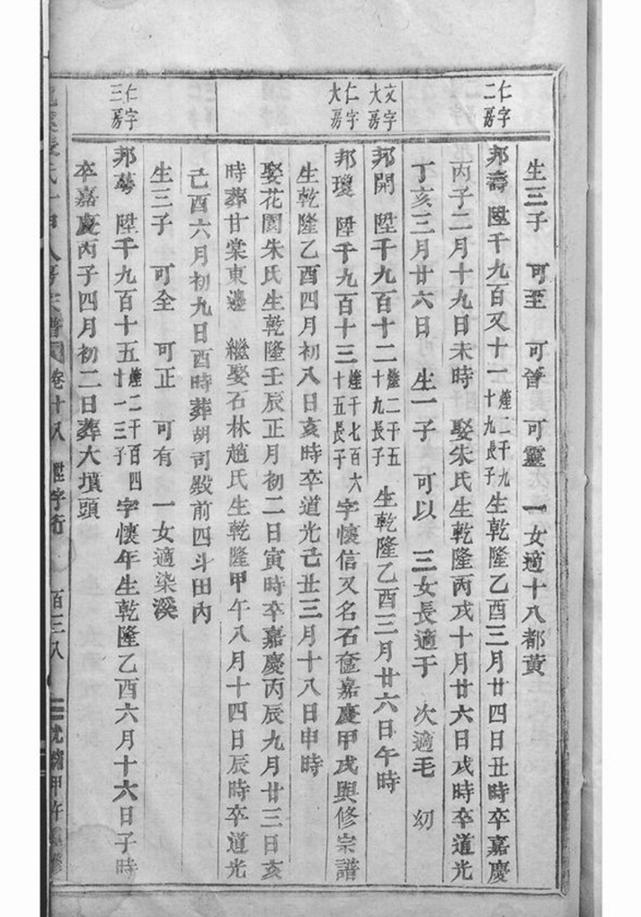 生三子 可至 可晉 可靈 一女適十八都黃
仁字二房
邦壽 陞千九百又十一 煃二千九十九長子 生乾隆乙酉三月廿四日丑時卒嘉慶
丙子二月十九日未時 娶朱氏生乾隆丙戌十月廿六日戌時卒道光
丁亥三月廿六日 生一子 可以 三女長適于 次適毛 幼
文字大房
邦開 陞千九百十二 煃二千五十九長子 生乾隆乙酉三月廿六日午時
仁字大房
邦瓊 陞千九百十三 煃千七百六十五長子 字懷信又名石奩嘉慶甲戌與修宗譜
生乾隆乙酉四月初八日亥時卒道光己丑三月十八日申時
娶花園朱氏生乾隆壬辰正月初二日寅時卒嘉慶丙辰九月廿三日亥
時葬甘棠東邊 繼娶石林趙氏生乾隆甲午八月十四日辰時卒道光
己酉六月初九日酉時葬胡司殿前四斗田內
生三子 可全 可正 可有 一女適染溪
仁字三房
邦蕚 陞千九百十五 煃二千百四廿一三子 字懷年生乾隆乙酉六月十六日子時
卒嘉慶丙子四月初二日葬大墳頭
卷十八 陞字行 百三八
甲午重修